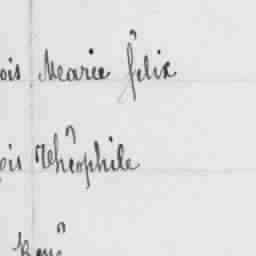 ois Marie felix
ois Théophile
René